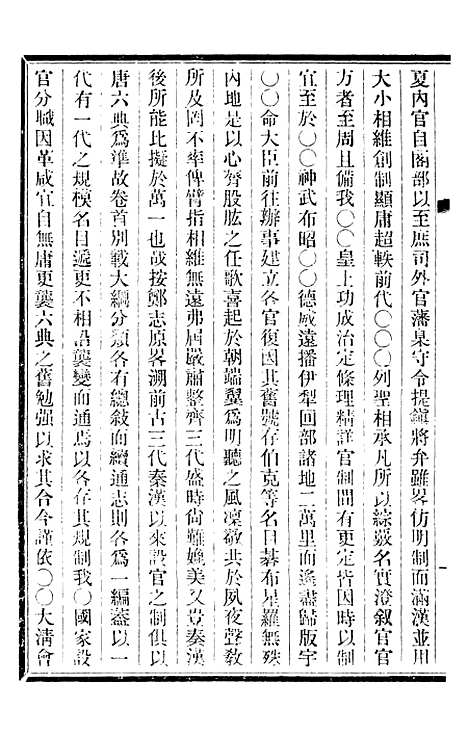 夏內官自閣部以至庶司外官藩臬守令提鎭將弁雖畧仿明制而滿漢並用
大小相維創制顯庸超軼前代〇〇〇列聖相承凡所以綜覈名實澄叙官
方者至周且備我〇〇皇上功成治定條理精詳官制閒有更定皆因時以制
宜至於〇〇神武布昭〇〇德威遠播伊犁回部諸地二萬里而遙盡歸版宇
〇〇命大臣前往辦事建立各官復因其舊號存伯克等名目碁布星羅無殊
內地是以心膂股肱之任歌喜起於朝端翼爲明聽之風凜敬共於夙夜聲敎
所及罔不率俾臂指相維無遠弗屆嚴肅整齊三代盛時尙難媲美又豈秦漢
後所能比擬於萬一也哉按鄭志原畧溯前古三代秦漢以來設官之制俱以
唐六典爲準故卷首別載大綱分類各有總敘而續通志則各爲一編蓋以一
代有一代之規模名目遞更不相沿襲變而通焉以各存其規制我〇國家設
官分職因革咸宜自無庸更襲六典之舊勉强以求其合今謹依〇〇大淸會